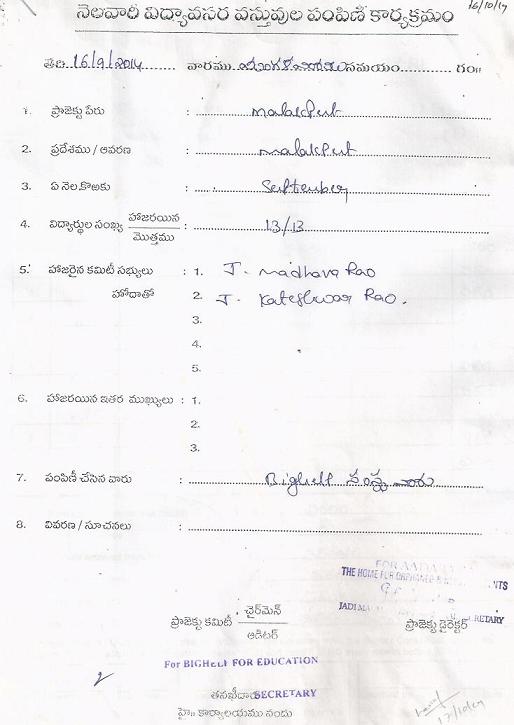 16/10/14
నెలవారి విద్యావసర వస్తువుల పంపిణి కార్యక్రమం
తేది 16/9/2014 వారము మంగళవారము సమయం గం॥
1. ప్రాజెక్టు పేరు : malakpet
2. ప్రదేశము / ఆవరణ : malakpet
3. ఏ నెల కొఱకు : September
4. విద్యార్థుల సంఖ్య హాజరయిన / మొత్తము : 13/13
5. హాజరైన కమిటీ సభ్యులు : 1. J. madhava Rao
హోదాతో 2. J. Kateshwar Rao.
3.
4.
5.
6. హాజరయిన ఇతర ముఖ్యులు : 1.
2.
3.
7. పంపిణీ చేసిన వారు : Bighelp సంస్థ వారు
8. వివరణ / సూచనలు :
FOR AADA
THE HOME FOR ORPHANED & NTS
JADI MA RETARY
ప్రాజెక్టు కమిటీ ఛైర్‌మెన్ / ఆడిటర్
ప్రాజెక్టు డైరెక్టర్
For BIGHELP FOR EDUCATION
తనఖీదారు SECRETARY
హై॥ కార్యాలయము నందు
17/10/14